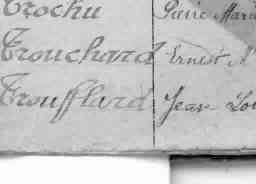 Trochu Pierre Marie
Trouchard Ernest A
Troufflard Jean Lou